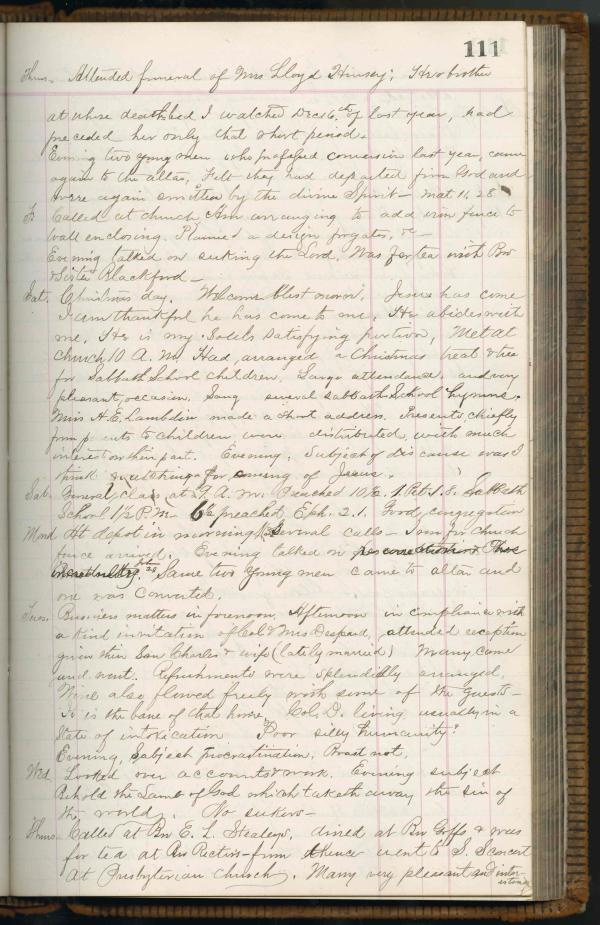 111
Thurs. Attended funeral of Mrs Lloyd Hussey; Her brother
at whose deathbed I watched Dec 16th of last year, had
preceded her only that short period.
Evening two young men who professed conversion last year, came
again to the altar, Felt they had departed from God and
were again smitten by the divine Spirit — Mat 11, 28
Called at church, Am arranging to add iron fence to
wall enclosing. Planned a design for gates, &c —
Evening talked on seeking the Lord. Was for tea with Bro
& Sister Blackford —
Sat. Christmas day. Welcome blest morn. Jesus has come
I am thankful he has come to me. He abides with
me. He is my Soul's satisfying portion, Met at
church 10 A. M. Had arranged a Christmas treat & tree
for Sabbath School children, Large attendance, and very
pleasant, occasion. Sang several Sabbath School hymns.
Miss A. E. Lambdin made a short address. Presents, chiefly
from to children were distributed, with much
interest on their part. Evening. Subject of discourse was I
think coming of Jesus.
Sab. General class at 9 A. M. Preached 10½. 1. Pet. 1. 8. Sabbath
School 1½ P. M. 6½ preached Eph. 2. 1. Good congregation
Mond At depot in morning Several calls — Iron for church
fence arrived. Evening talked on
Same two young men came to altar and
one was converted.
Tues. Business matters in forenoon. Afternoon in compliance with
a kind invitation of Col & Mrs Despard, attended reception
given their Son Charles & wife (lately married) Many came
and went. Refreshments were splendidly arranged,
Wine also flowed freely with some of the guests —
It is the bane of that home, Col. D. living usually in a
state of intoxication Poor silly humanity!
Evening, Subject procrastination, Boast not,
Wed Looked over accounts & work. Evening subject
Behold the Lamb of God which taketh away the sin of
the world. No seekers —
Thurs. Called at Bro E. L. Stealeys, dined at Bro Goffs & was
for tea at Bro Rectors — from thence went to S. S. concert
At Presbyterian church. Many very pleasant and inter-
esting